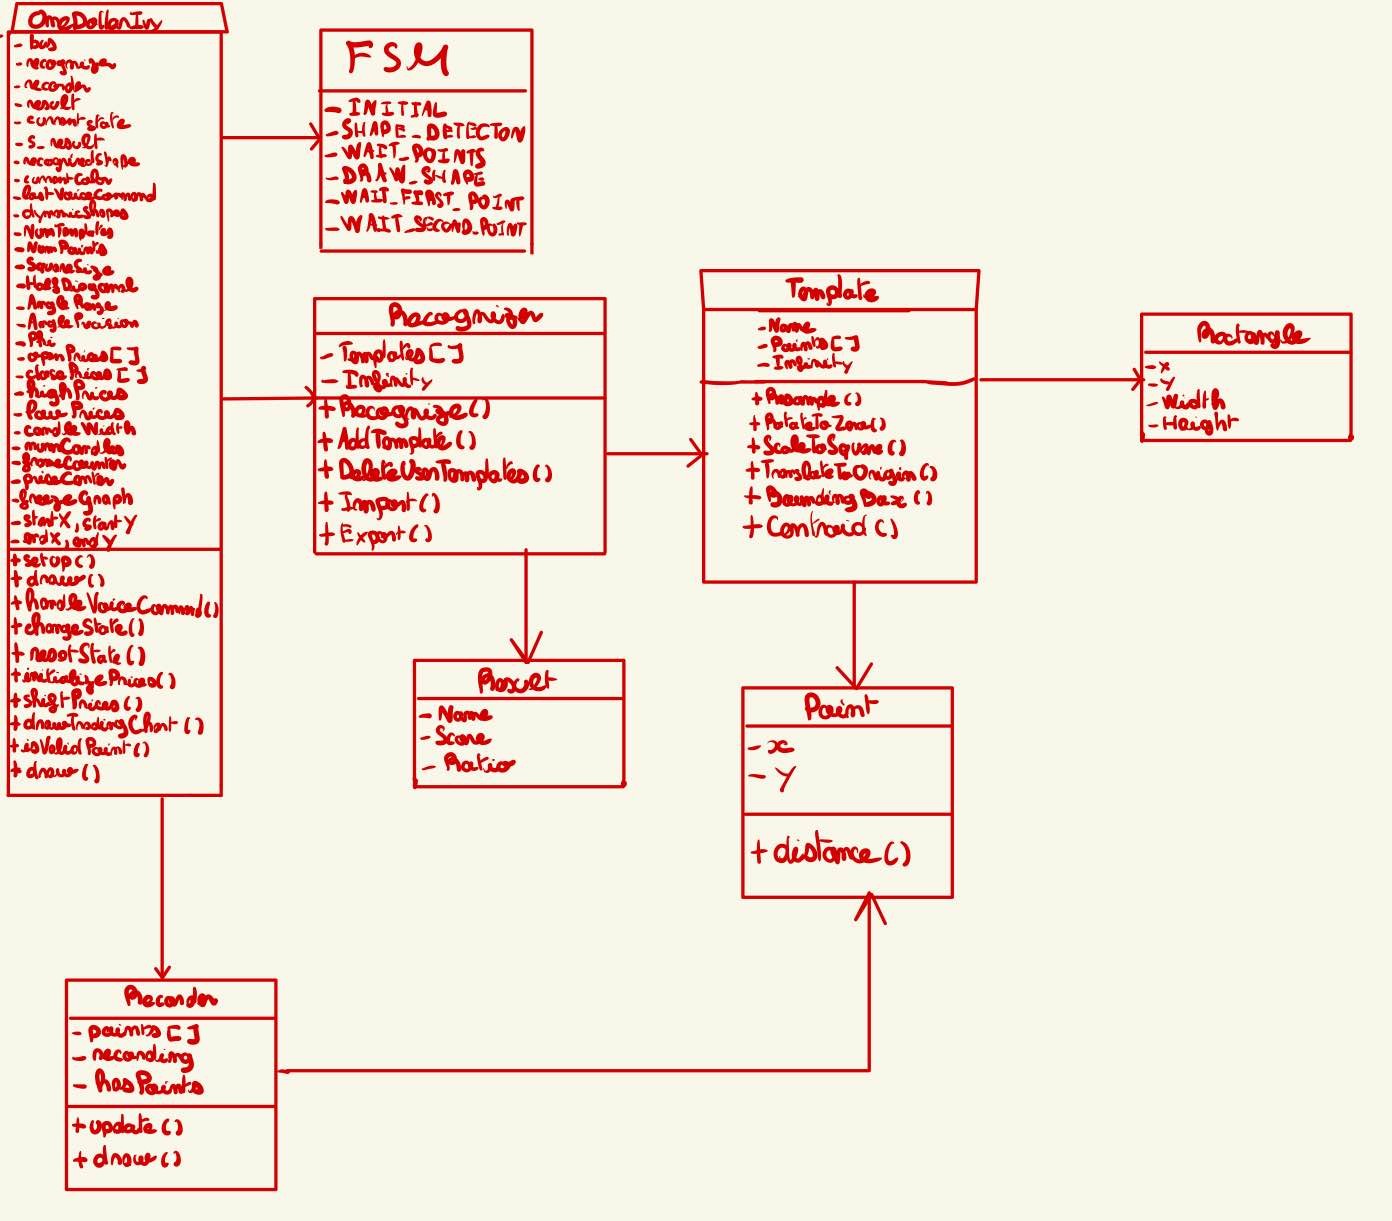 OneDollarIvy
- bus
- recognizer
- recorder
- result
- currentstate
- s_result
- recognizedShape
- currentColor
- lastVoiceCommand
- dynamicShapes
- NumTemplates
- NumPoints
- SquareSize
- HalfDiagonal
- AngleRange
- AnglePrecision
- Phi
- openPrices []
- closePrices []
- highPrices
- lowPrices
- candleWidth
- numCandles
- frameCounter
- priceCenter
- freezeGraph
- startX, startY
- endX, endY
+ setup()
+ draw()
+ handleVoiceCommand()
+ changeState()
+ resetState()
+ initializePrices()
+ shiftPrices()
+ drawTradingChart()
+ isValidPoint()
+ draw()
FSM
- INITIAL
- SHAPE_DETECTON
- WAIT_POINTS
- DRAW_SHAPE
- WAIT_FIRST_POINT
- WAIT_SECOND_POINT
Recognizer
- Templates []
- Infinity
+ Recognize()
+ AddTemplate()
+ DeleteUserTemplates()
+ Import()
+ Export()
Template
- Name
- Points []
- Infinity
+ Resample()
+ RotateToZero()
+ ScaleToSquare()
+ TranslateToOrigin()
+ BoundingBox()
+ Centroid()
Rectangle
- x
- Y
- Width
- Height
Result
- Name
- Score
- Ratio
Point
- x
- Y
+ distance()
Recorder
- points []
- recording
- hasPoints
+ update()
+ draw()